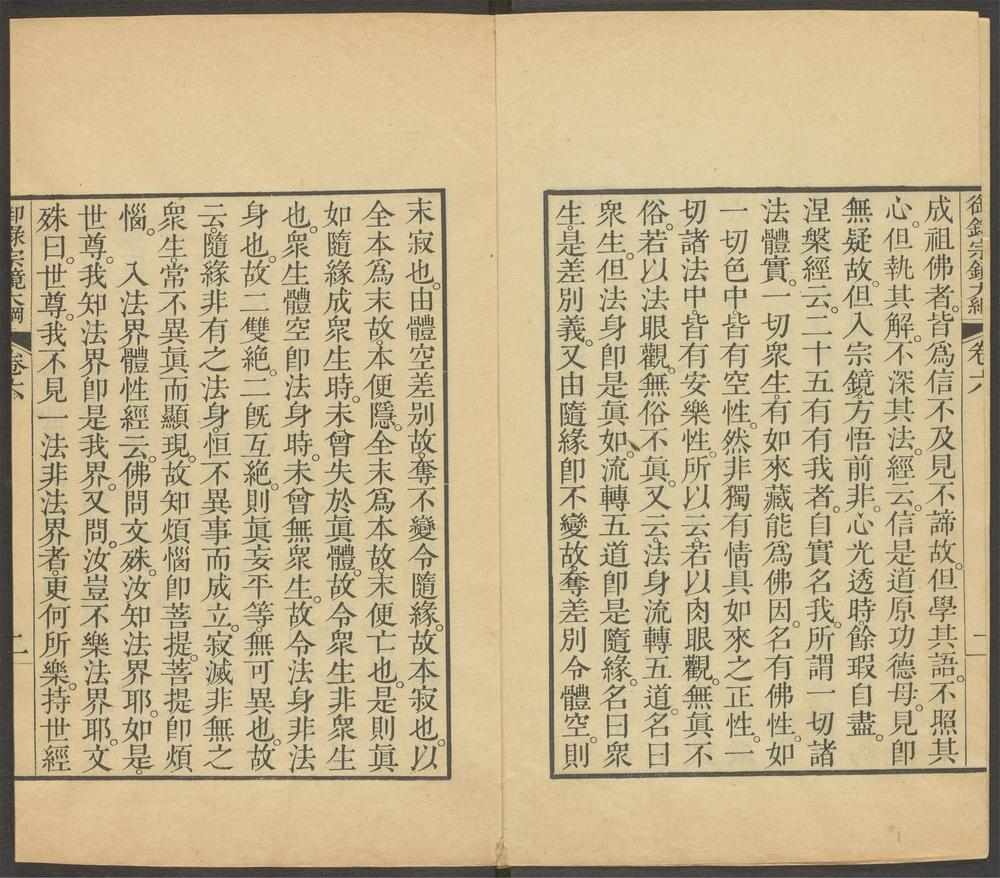 御錄宗鏡大綱 卷六 二
成祖佛者。皆爲信不及見不諦故。但學其語。不照其
心。但執其解。不深其法。經云。信是道原功德母。見卽
無疑故。但入宗鏡。方悟前非。心光透時。餘瑕自盡。
涅槃經云。二十五有有我者。自實名我。所謂一切諸
法體實。一切衆生。有如來藏能爲佛因。名有佛性。如
一切色中。皆有空性。然非獨有情。具如來之正性。一
切諸法中。皆有安樂性。所以云。若以肉眼觀。無眞不
俗。若以法眼觀。無俗不眞。又云。法身流轉五道。名曰
衆生。但法身卽是眞如。流轉五道卽是隨緣。名曰衆
生。是差別義。又由隨緣卽不變故。奪差別令體空。則
末寂也。由體空差別故。奪不變令隨緣。故本寂也。以
全本爲末故。本便隱。全末爲本故。末便亡也。是則眞
如隨緣成衆生時。未曾失於眞體。故令衆生非衆生
也。衆生體空卽法身時。未曾無衆生。故令法身非法
身也。故二雙絶。二旣互絶。則眞妄平等無可異也。故
云。隨緣非有之法身。恒不異事而成立。寂滅非無之
衆生。常不異眞而顯現。故知煩惱卽菩提。菩提卽煩
惱。 入法界體性經云。佛問文殊。汝知法界耶。如是。
世尊。我知法界卽是我界。又問。汝豈不樂法界耶。文
殊曰。世尊。我不見一法非法界者。更何所樂。持世經
御錄宗鏡大綱 卷六 二